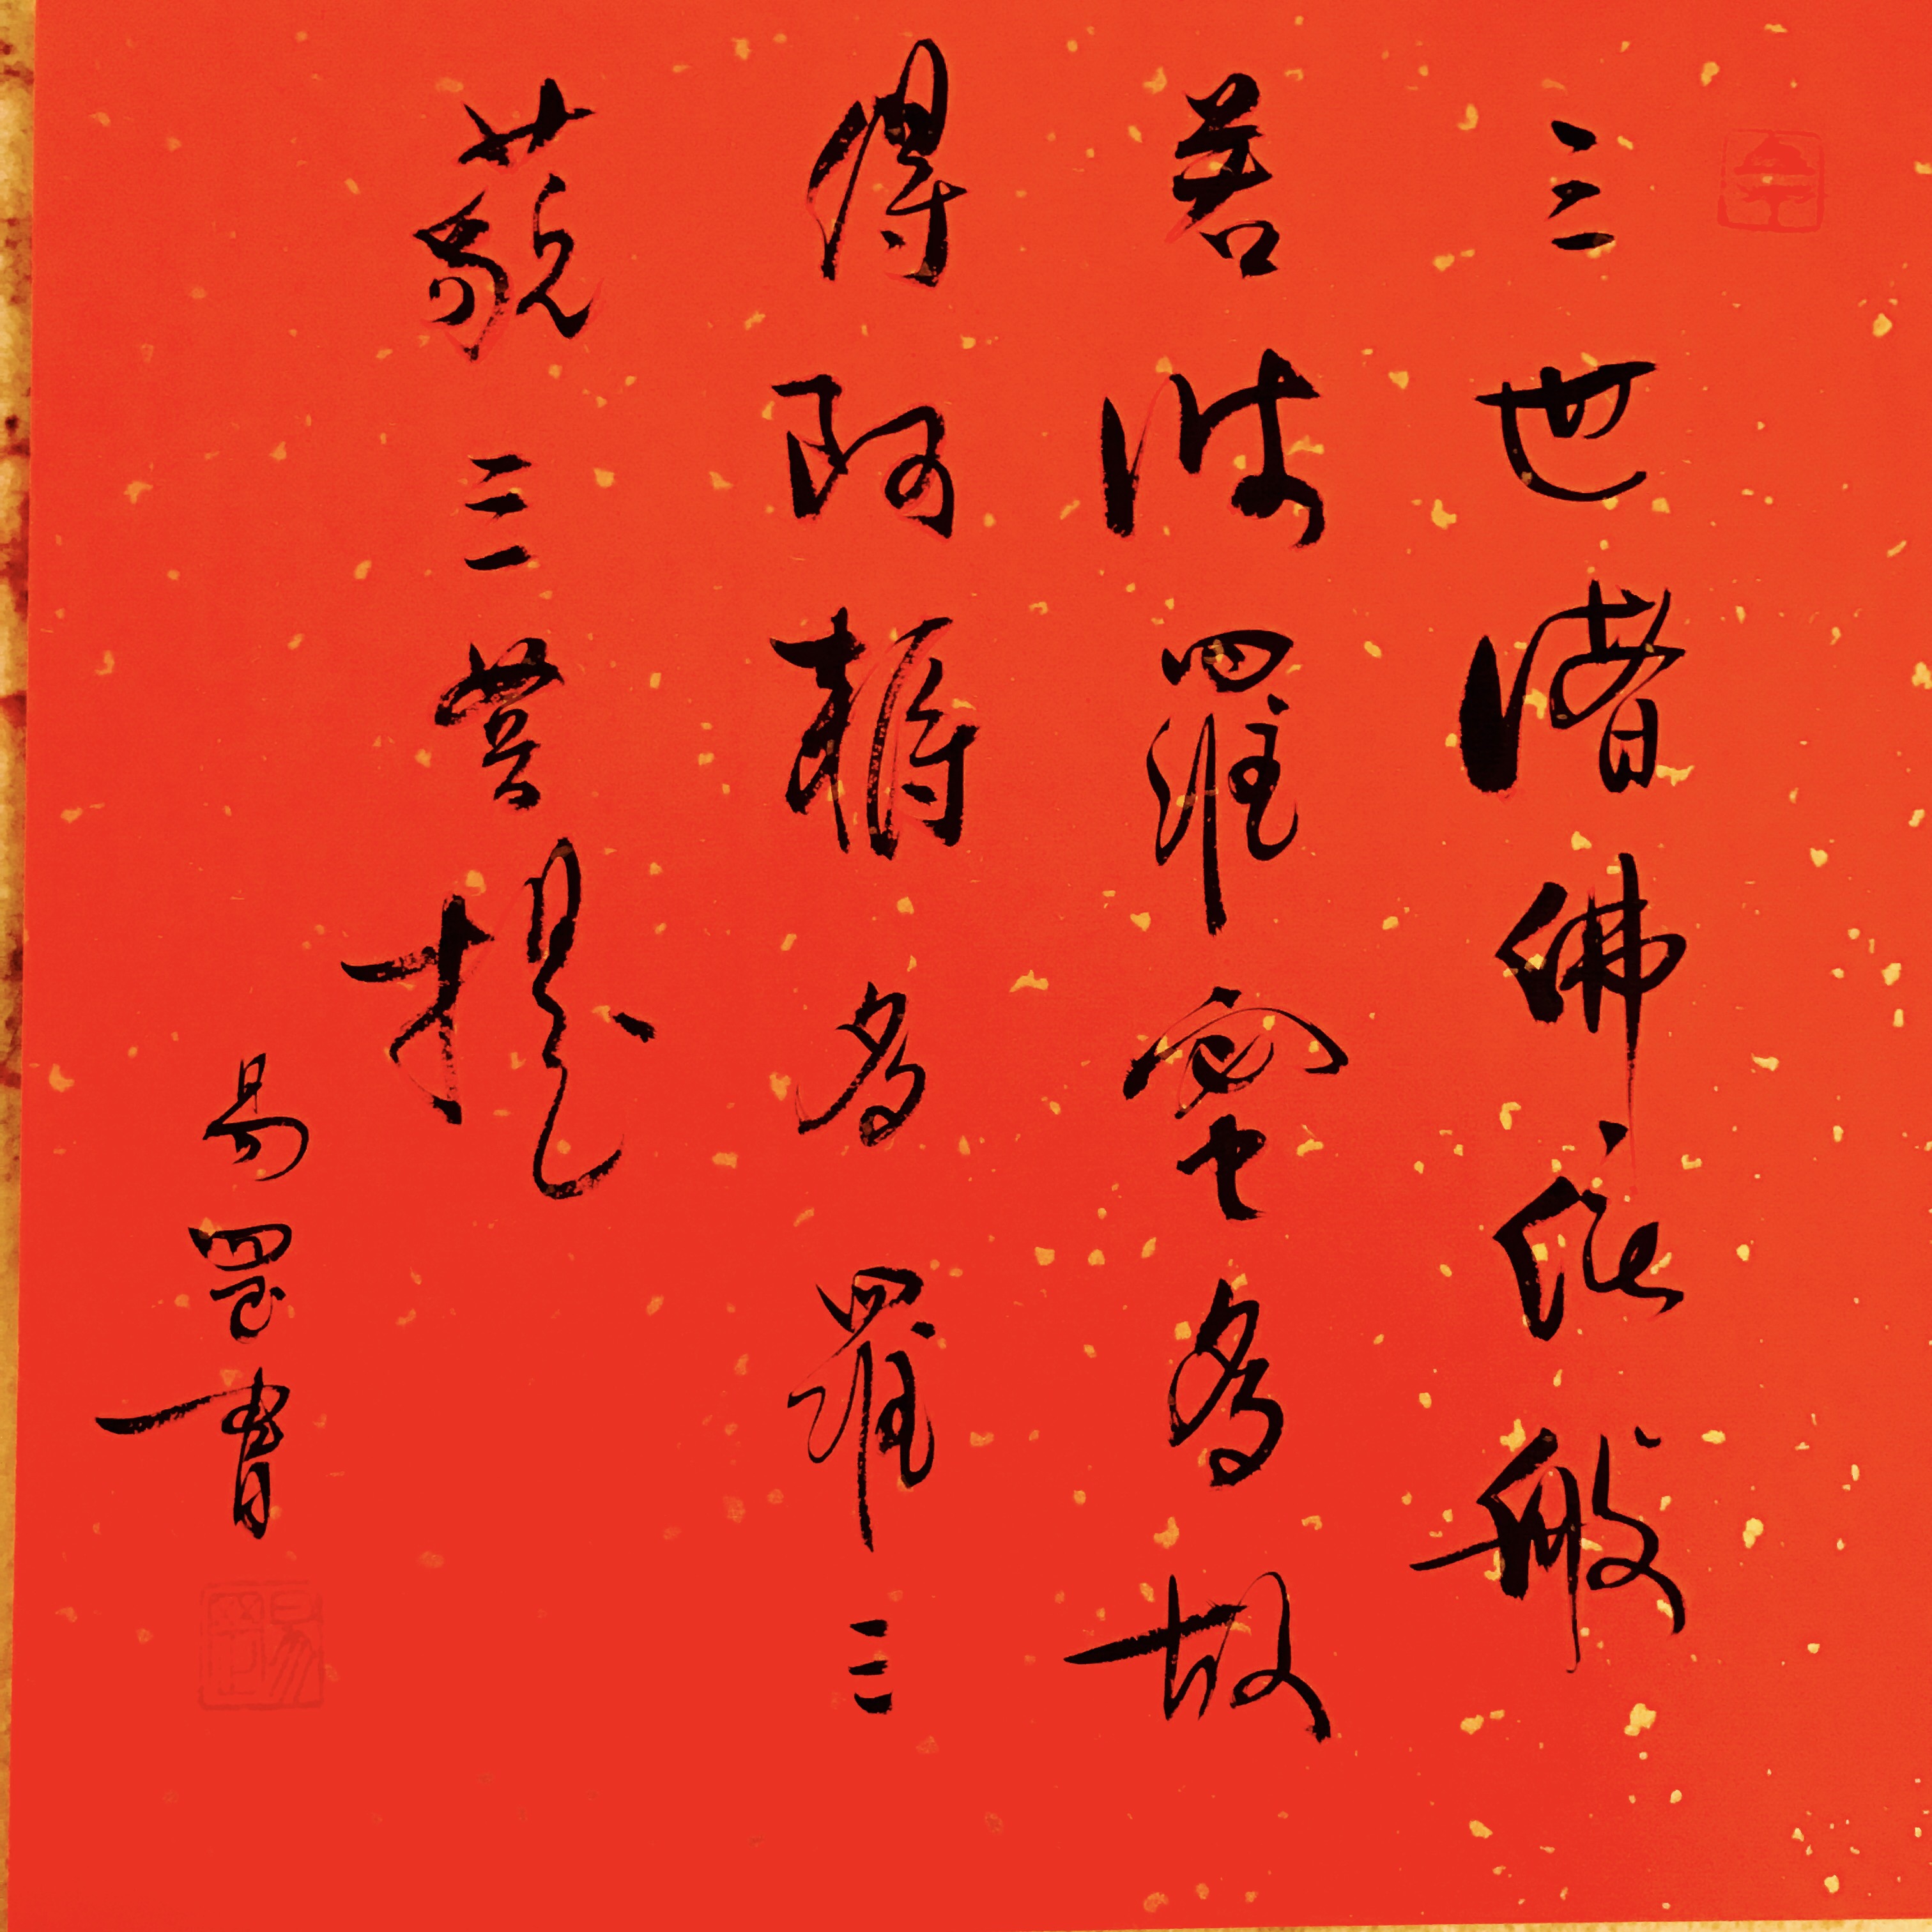 三世諸佛依般
若波羅蜜多故
得阿耨多羅三
藐三菩提
易罡書